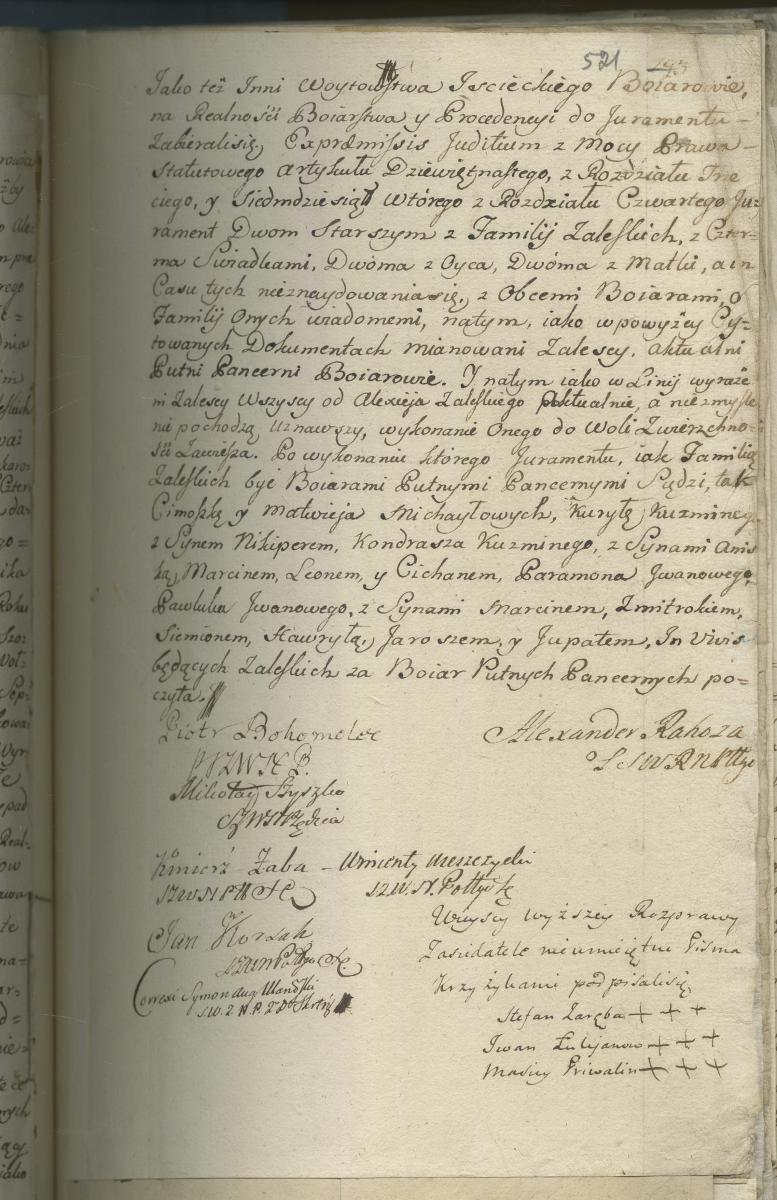 521 243
Jako też Inni Woytowstwa Jscieckiego Boiarowie,
na Realność Boiarstwa y Procedencyi do Juramentu
Zabieralisię, Expræmissis Juditium z Mocy Prawa
Statutowego Artykułu Dziewiętnastego, z Rozdziału Trze
ciego, y Siedmdziesiąt Wtórego z Rozdziału Czwartego Ju=
rament Dwom Starszym z Familij Zaleskich, z Czter=
ma Swiadkami, Dwóma z Oyca, Dwóma z Matki, a in
Casu tych nieznaydowania się, z Obcemi Boiarami, o
Familij Onych wiadomemi, natym, iako w powyżey Cy=
towanych Dokumentach mianowani Zalescy, aktualni
Putni Pancerni Boiarowie. Y natym iako w Linij wyraże
ni Zalescy Wszyscy od Alexieja Zaleskiego Aktualnie, a niezmyśle
nie pochodzą Uznawszy, wykonanie Onego do Woli Zwierzchno=
ści Zawiesza. Po wykonaniu którego Juramentu, iak Familią
Zaleskich być Boiarami Putnymi Pancernymi Sądzi, tak
Cimoszkę y Matwieja Michayłowych, Kuryłę Kuzmineg.
z Synem Nikiperem, Kondrasza Kuzminego, z Synami Anis
ką, Marcinem, Leonem, y Cichanem, Paramona Jwanowego,
Pawluka Jwanowego, z Synami Marcinem, Zmitrokiem,
Siemionem, Hawryłą, Jaroszem, y Jupatem, In Vivis
będących Zaleskich za Boiar Putnych Pancernych po=
czyta.
Piotr Bohomolec
Alexander Rahoza
Mikołay Szyszko
Kmierz Żaba – Wincenty Meszczycki
Jan Korsak
Correxi Symon Aug
Wszyscy wyższey Rozprawy
Zasidatele nieumieiętne Pisma
Krzyżykami podpisalisię,
Stefan Zaręba + + +
Jwan Łukjanow + + +
Maciey Priwalin + + +